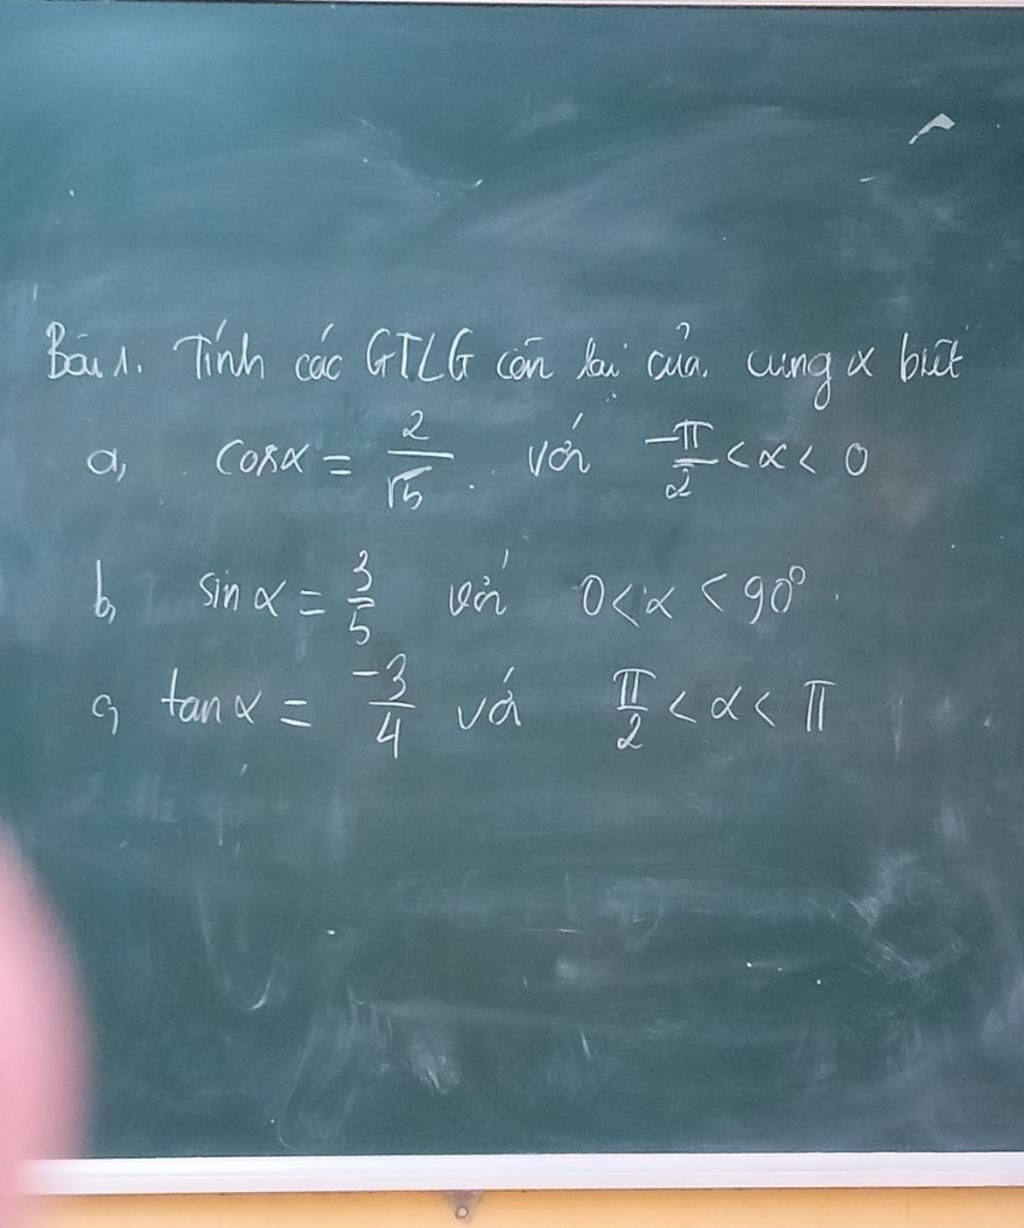 Bài 1. Tính các GTLG còn lại của cung α biết
a, cosα = 2/√5 với -π/2 < α < 0
b, sin α = 3/5 với 0 < α < 90°.
c, tan α = -3/4 với π/2 < α < π